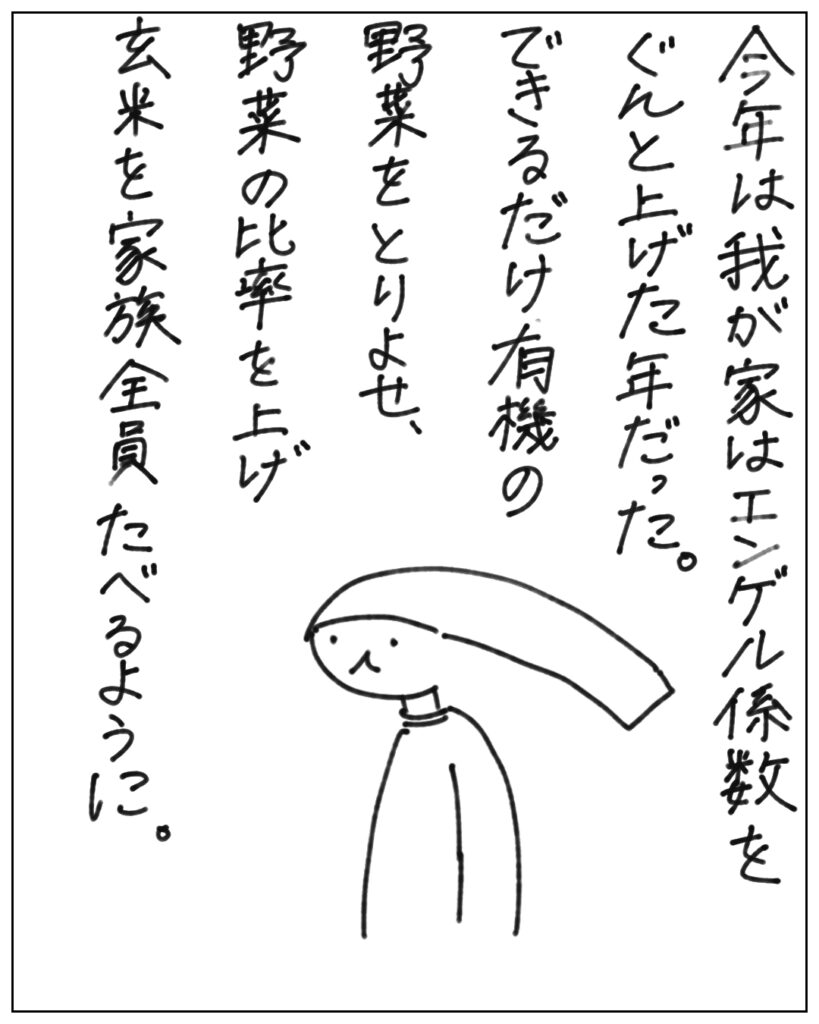 今年は我が家はエンゲル係数を
ぐんと上げた年だった。
できるだけ有機の
野菜をとりよせ、
野菜の比率を上げ
玄米を家族全員たべるように。